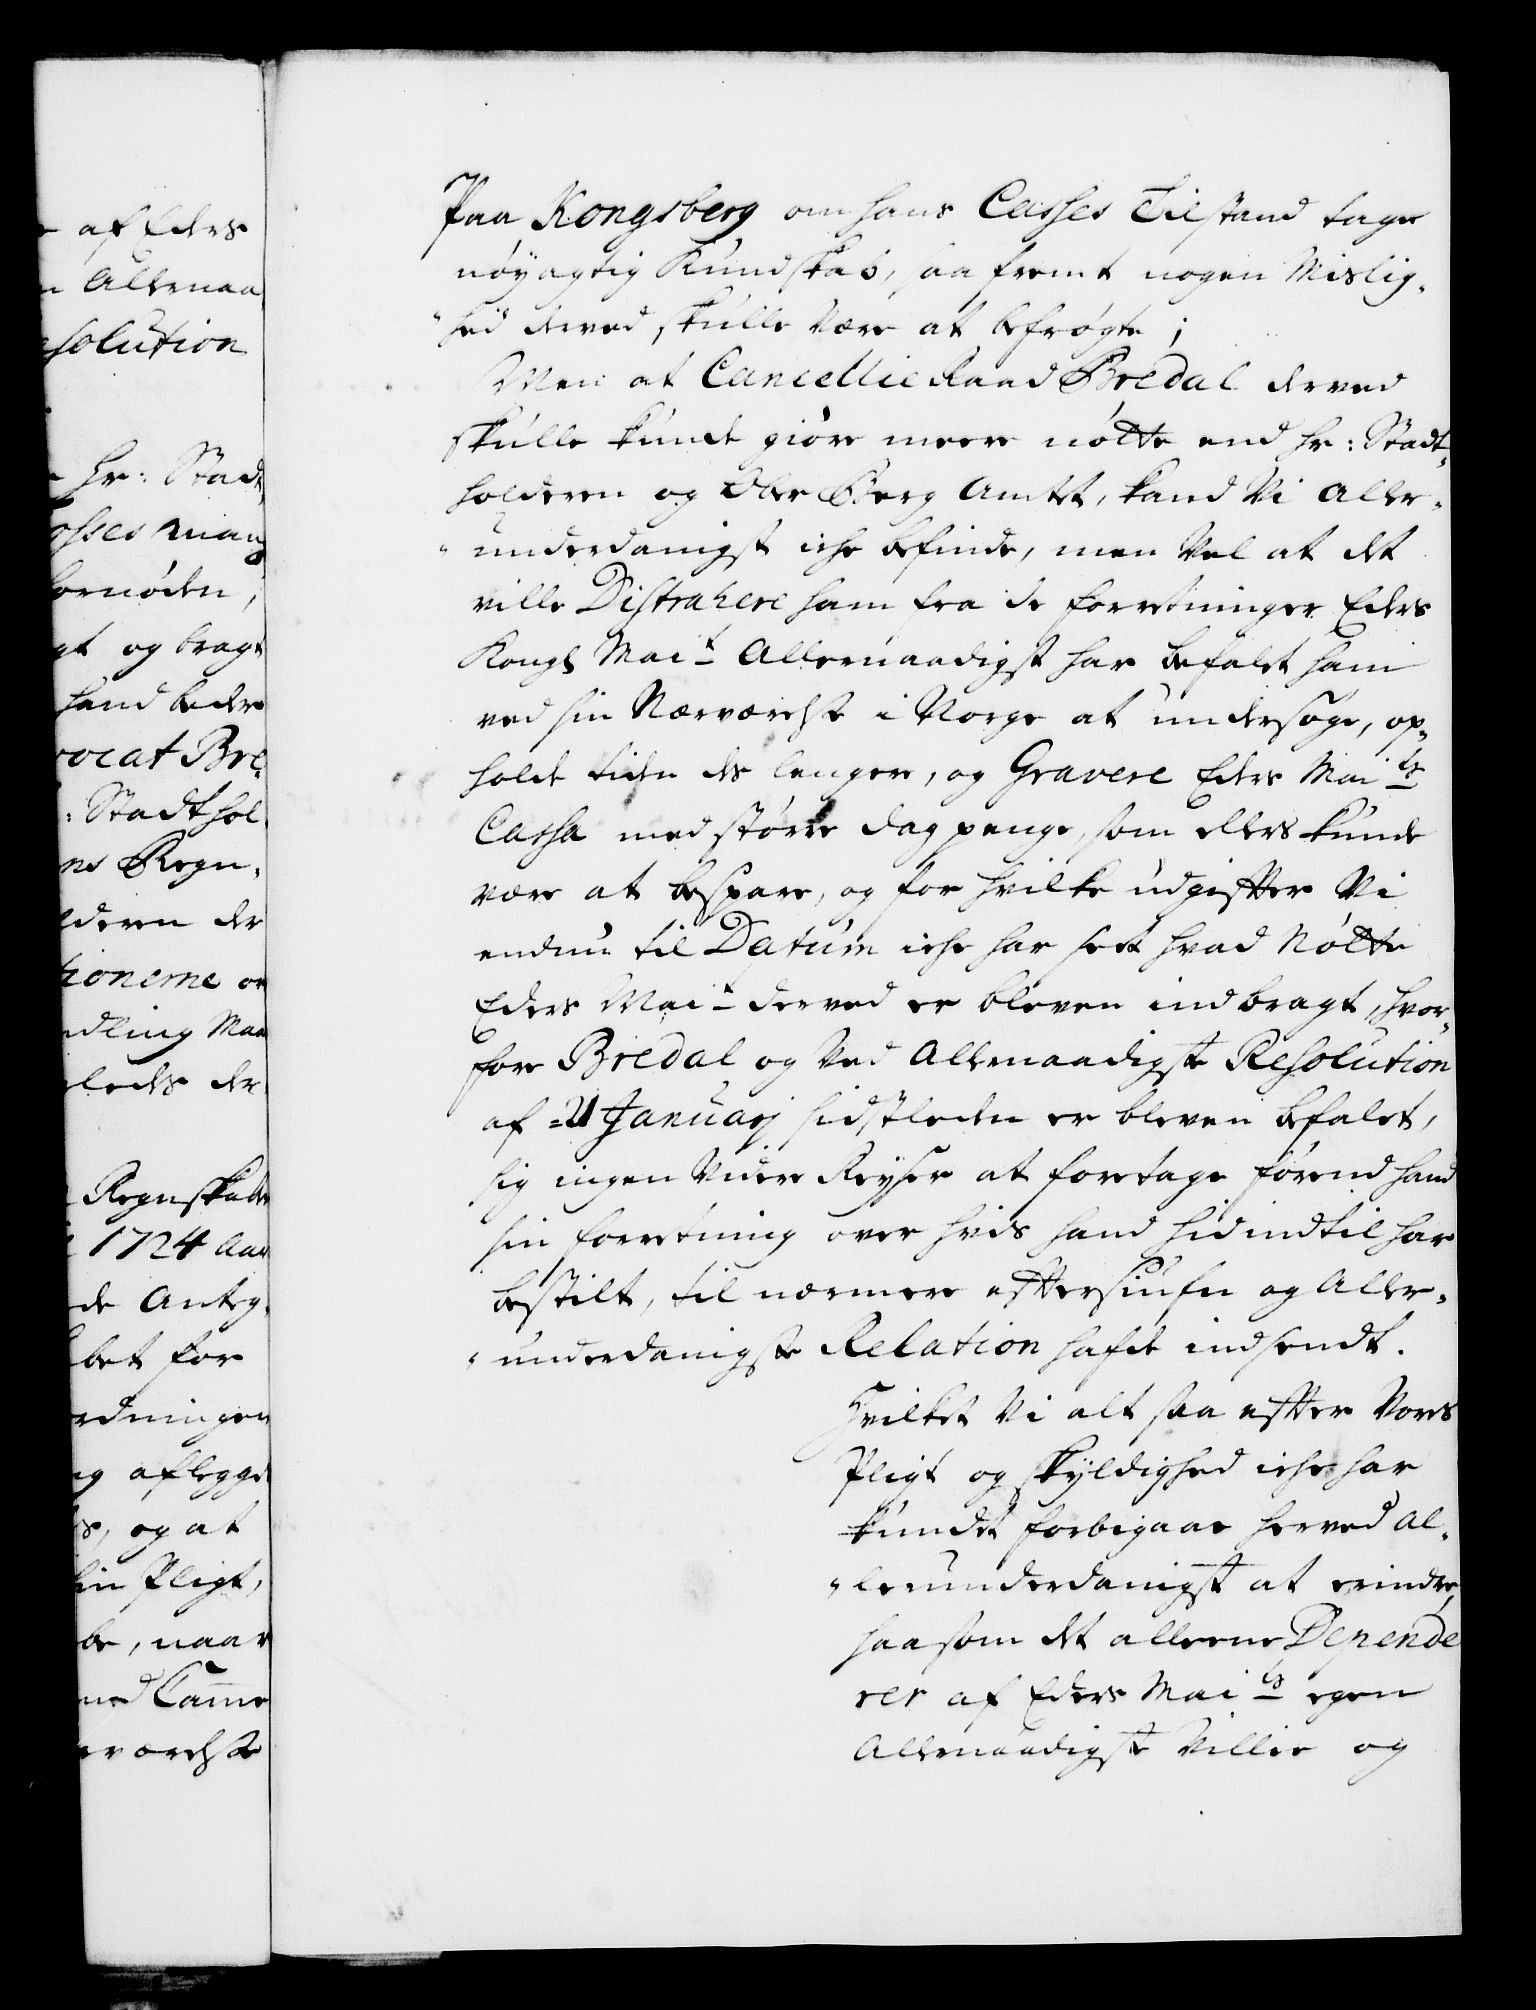 af Eders
Allernaa
solution
hr: Stadt
osses mang
fornøden,
gt og bragt
hand beder
vocat Bre,
: Stadthol
ns Regn,
lderen der
tionerne
ndling Maa
leedes der
Regnskaber
1724 Aar
de Anteg,
bet for
rdningen
og aflegge
s, og at
sin Pligt,
be, naar
ned Cam̄e
erværelse
Paa Kongsberg om hans Casses Tilstand tage
nøyagtig Kundskab, saa fremt nogen Mislig,
"hed derved skulle være at befrøgte;
Men at Cancellie Raad Bredal derved
skulle kunde giøre meere nøtte end hr: Stadt,
holderen og Ober Berg Amtet, kand Vi Aller,
"underdanigst iche befinde, men Vel at det
ville Distrahere ham fra de forretninger Eders
Kongl Mait Allernaadigst har befalet ham
ved sin Nærværelse i Norge at undersøge, op,
holde tiden des lengere, og Gravere Eders Maits
Cassa med større dag penge, som ellers kunde
være at bespare, og for hvilke udgifter Vi
endnu til Datum iche har seet hvad Nøtte
Eders Mait derved er bleven indbragt, hvor,
fore Bredal og Ved Allernaadigste Resolution
af 21 Januarj sidstleden er bleven befalet,
sig ingen Videre Reyser at foretage førend hand
sin forretning over hvis hand hid indtil har
bestilt, til nærmere eftersiufn og Aller,
"underdanigste Relation hafde indsendt.
Hvilket Vi alt saa efter Vores
Pligt og skyldighed iche har
kundet forbigaae herved Al,
"lerunderdanigst at erindre,
saasom det alleene Depende
rer af Eders Maits egen
Allernaadigste Villie og